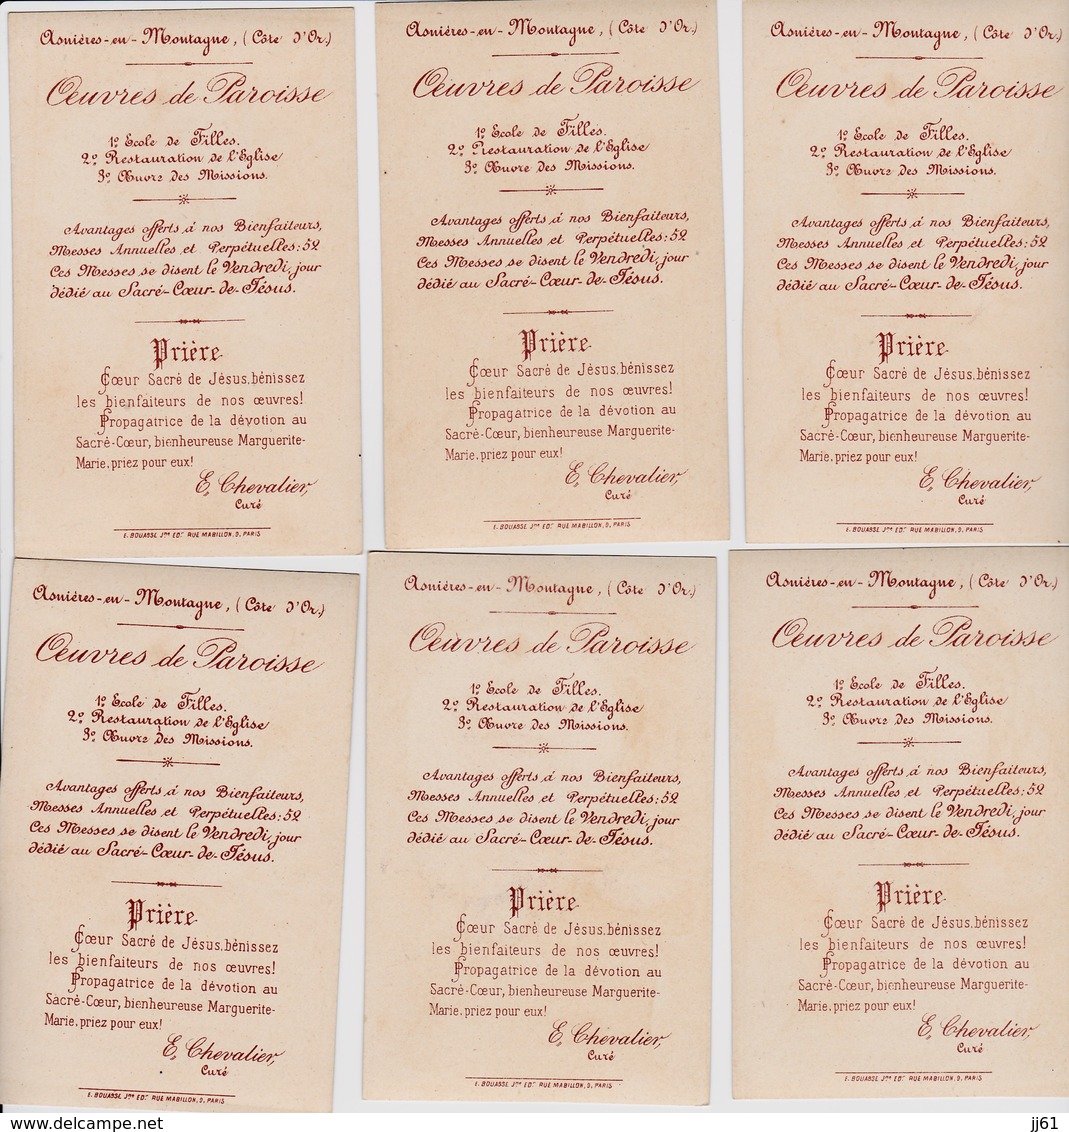 Asnières-en-Montagne, (Côte d'Or.)
Œuvres de Paroisse
1º Ecole de Filles.
2º Restauration de l'Eglise
3º Œuvre des Missions.
Avantages offerts à nos Bienfaiteurs,
Messes Annuelles et Perpétuelles: 52
Ces Messes se disent le Vendredi, jour
dédié au Sacré-Cœur-de-Jésus.
Prière.
Cœur Sacré de Jésus, bénissez
les bienfaiteurs de nos œuvres!
Propagatrice de la dévotion au
Sacré-Cœur, bienheureuse Marguerite-
Marie, priez pour eux!
E. Chevalier,
Curé
E. BOUASSE Jne EDr RUE MABILLON, 9, PARIS
Asnières-en-Montagne, (Côte d'Or.)
Œuvres de Paroisse
1º Ecole de Filles.
2º Restauration de l'Eglise
3º Œuvre des Missions.
Avantages offerts à nos Bienfaiteurs,
Messes Annuelles et Perpétuelles: 52
Ces Messes se disent le Vendredi, jour
dédié au Sacré-Cœur-de-Jésus.
Prière.
Cœur Sacré de Jésus, bénissez
les bienfaiteurs de nos œuvres!
Propagatrice de la dévotion au
Sacré-Cœur, bienheureuse Marguerite-
Marie, priez pour eux!
E. Chevalier,
Curé
E. BOUASSE Jne EDr RUE MABILLON, 9, PARIS
Asnières-en-Montagne, (Côte d'Or.)
Œuvres de Paroisse
1º Ecole de Filles.
2º Restauration de l'Eglise
3º Œuvre des Missions.
Avantages offerts à nos Bienfaiteurs,
Messes Annuelles et Perpétuelles: 52
Ces Messes se disent le Vendredi, jour
dédié au Sacré-Cœur-de-Jésus.
Prière.
Cœur Sacré de Jésus, bénissez
les bienfaiteurs de nos œuvres!
Propagatrice de la dévotion au
Sacré-Cœur, bienheureuse Marguerite-
Marie, priez pour eux!
E. Chevalier,
Curé
E. BOUASSE Jne EDr RUE MABILLON, 9, PARIS
Asnières-en-Montagne, (Côte d'Or.)
Œuvres de Paroisse
1º Ecole de Filles.
2º Restauration de l'Eglise
3º Œuvre des Missions.
Avantages offerts à nos Bienfaiteurs,
Messes Annuelles et Perpétuelles: 52
Ces Messes se disent le Vendredi, jour
dédié au Sacré-Cœur-de-Jésus.
Prière.
Cœur Sacré de Jésus, bénissez
les bienfaiteurs de nos œuvres!
Propagatrice de la dévotion au
Sacré-Cœur, bienheureuse Marguerite-
Marie, priez pour eux!
E. Chevalier,
Curé
E. BOUASSE Jne EDr RUE MABILLON, 9, PARIS
Asnières-en-Montagne, (Côte d'Or.)
Œuvres de Paroisse
1º Ecole de Filles.
2º Restauration de l'Eglise
3º Œuvre des Missions.
Avantages offerts à nos Bienfaiteurs,
Messes Annuelles et Perpétuelles: 52
Ces Messes se disent le Vendredi, jour
dédié au Sacré-Cœur-de-Jésus.
Prière.
Cœur Sacré de Jésus, bénissez
les bienfaiteurs de nos œuvres!
Propagatrice de la dévotion au
Sacré-Cœur, bienheureuse Marguerite-
Marie, priez pour eux!
E. Chevalier,
Curé
E. BOUASSE Jne EDr RUE MABILLON, 9, PARIS
Asnières-en-Montagne, (Côte d'Or.)
Œuvres de Paroisse
1º Ecole de Filles.
2º Restauration de l'Eglise
3º Œuvre des Missions.
Avantages offerts à nos Bienfaiteurs,
Messes Annuelles et Perpétuelles: 52
Ces Messes se disent le Vendredi, jour
dédié au Sacré-Cœur-de-Jésus.
Prière.
Cœur Sacré de Jésus, bénissez
les bienfaiteurs de nos œuvres!
Propagatrice de la dévotion au
Sacré-Cœur, bienheureuse Marguerite-
Marie, priez pour eux!
E. Chevalier,
Curé
E. BOUASSE Jne EDr RUE MABILLON, 9, PARIS
www.delcampe.net
jj61